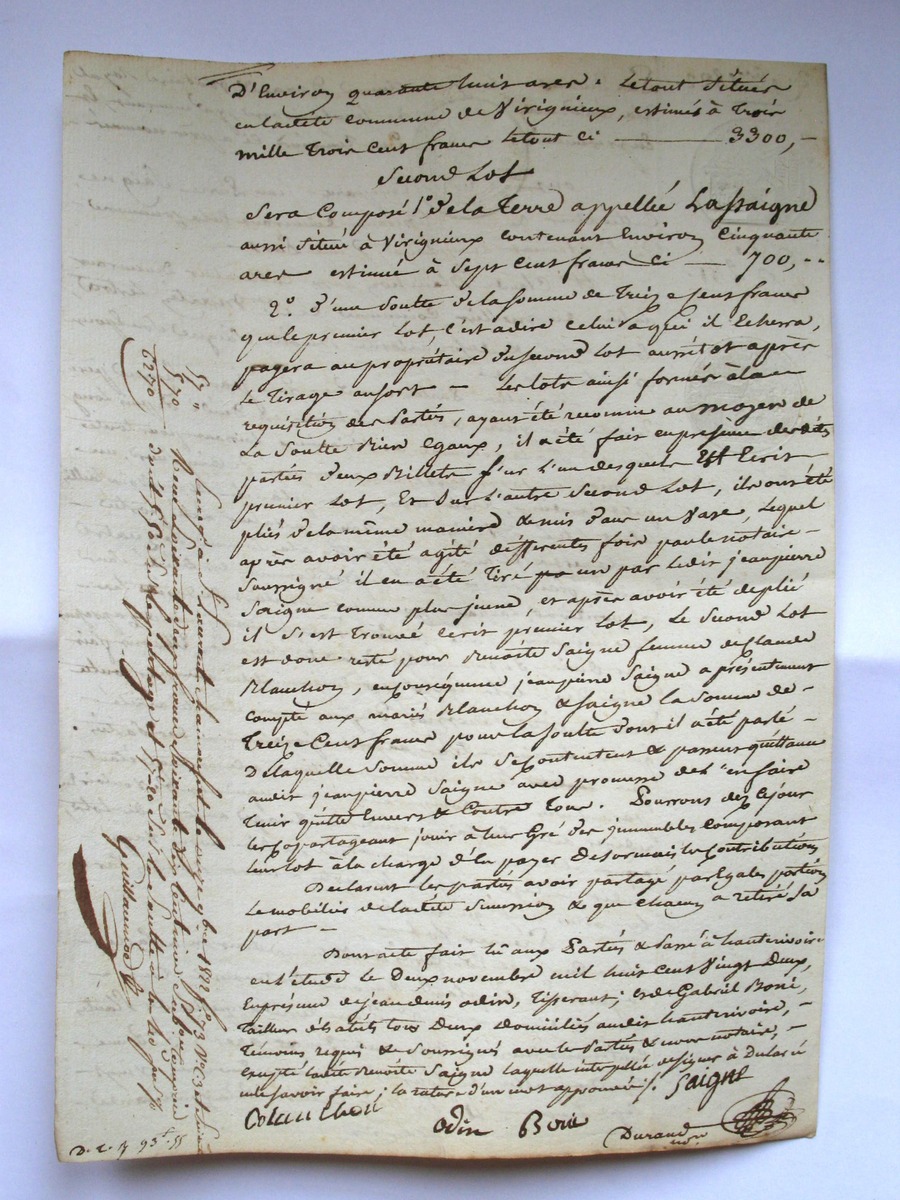 D'Environ quarante huit ares. Le tout situés
en ladite commune de Virignieux, estimés à Trois
mille Trois Cent francs le tout ci 3300,-
Second Lot
Sera Composé 1º de la Terre appellée Lassaigne
aussi située à Virignieux contenant Environ Cinquante
ares estimée à Sept Cent francs ci 700,-
2º. d'une soulte de la somme de Treize Cent francs
que le premier Lot, C'est à dire celui à qui il Echerra,
payera au propriétaire du second Lot aussitot après
le Tirage au sort - Les lots ainsi formés à la
requisition des Parties, ayant été reconnus au moyen de
La Soulte Bien Egaux, il a été fait en présence des dites
parties deux Billets sur l'un desquels Est Ecrit
premier Lot, Et sur L'autre Second Lot, ils ont été
pliés de la même manière & mis dans un Vase, Lequel
après avoir été agité differentes fois par le notaire
soussigné il en a été Tiré un par ledit jean pierre
Saigne comme plus jeune, et après avoir été deplié
il s'est Trouvé Ecrit premier Lot, Le Second Lot
est donc resté pour Benoite Saigne femme de Claude
Blanchon, en conséquence jean pierre Saigne a présentement
Compté aux mariés Blanchon & Saigne la Somme de
Treize Cent francs pour la soulte dont il a été parlé
De laquelle Somme ils se contentent & passent quittance
audit jean pierre Saigne avec promesse de l'en faire
Tenir quitte Envers & Contre Tous. Pourront dez Ce jour
les copartageant jouir à leur Gré des immeubles Composant
leur lot à la charge de payer désormais les Contributions
Déclarent les parties avoir partagé par Egales portions
Le mobilier de ladite Succession & que chacun a retiré sa
part -
Dont acte fait lû aux Parties & Passé à hauterivoire
en l'étude le Deux novembre mil huit cent Vingt Deux,
En présence de jean denis odin, Tisserant; et de Gabriel Boné,
Tailleur d'habits tous Deux domiciliés audit hauterivoire,
Témoins requis & Soussignés avec les Parties & nous notaire,
excepté ladite Benoite Saigne laquelle interpellée de signer à Déclaré
ne savoir faire; la rature d'un mot approuvée. Saigne
Blanchon
odin Boné
Durand
nore
57 "
570
6270
Enregistré à St Laurent de chamousset le novembre 1822 fº 73
Reçu
dont 5 50
Guillaume
D. 2. 93 55